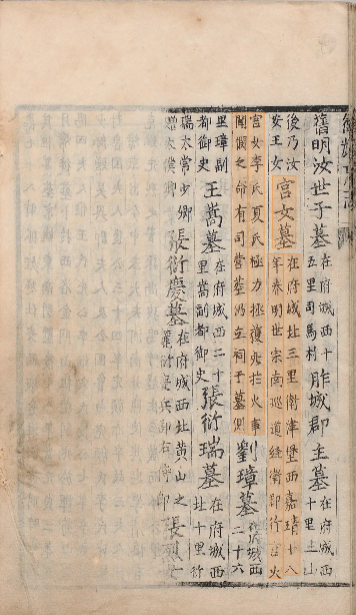 舊明汝世子墓
在府城西十
五里司馬村
胙城郡主墓
在府城西
十里土山
後乃汝
安王女
宮女墓
在府城北三里衛津堡西嘉靖十八
年春明世宗南巡道經衛即行宮火
宮女李氏夏氏極力拯護死於火事
聞憫之命有司營葬仍立祠于墓側
劉璋墓
在府城西
二十六
里璋副
都御史
王嵩墓
在府城西二十
里嵩副都御史
張衍瑞墓
在府城西
北十里衍
瑞太常少卿
贈太僕卿
張衍慶墓
在府城西北黄山之
麓衍慶兵部右侍郎
張烈女